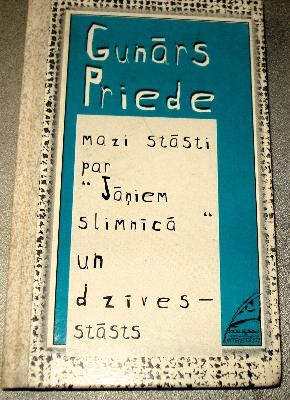 Gunārs
Priede
mazi stāsti
par
"Jāņiem
slimnīcā"
un
dzīves-
stāsts